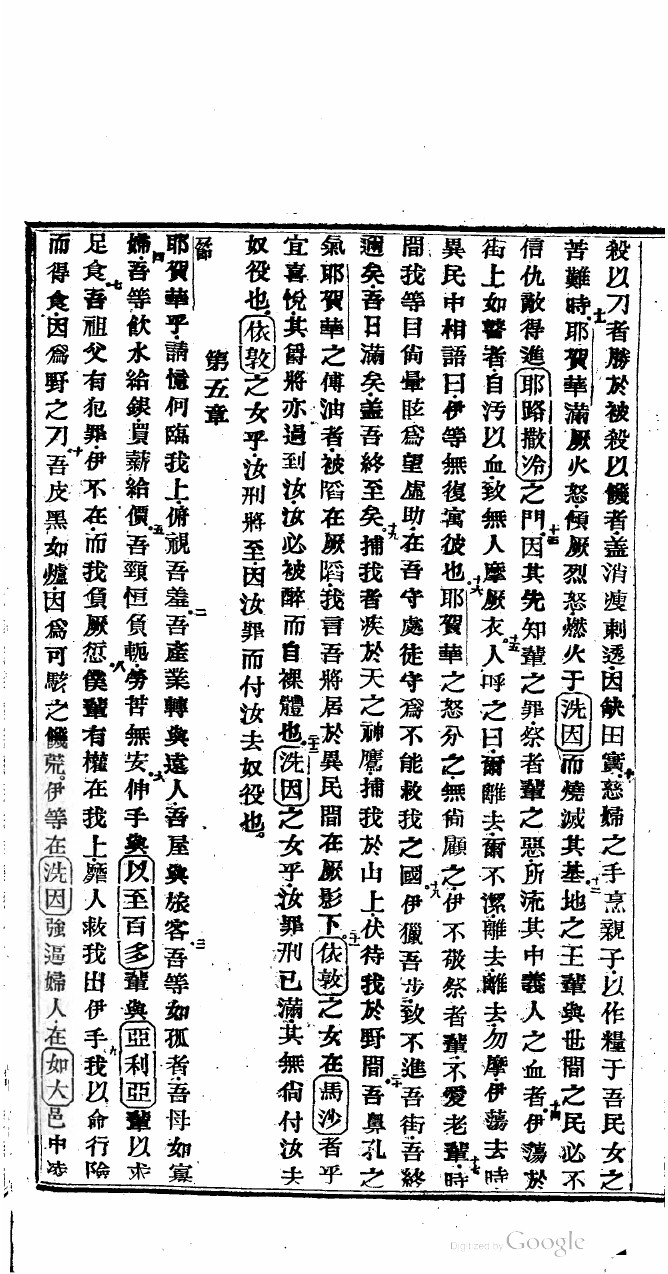 殺以刀者勝於被殺以饑者盖消瘦刺透因缺田實慈婦之手烹親子以作糧于吾民女之
苦難時耶賀華滿厥火怒傾厥烈怒燃火于洗因而燒滅其基地之王輩與世間之民必不
信仇敵得進耶路撒冷之門因其先知輩之罪祭者輩之惡所流其中義人之血者伊蕩於
街上如瞽者自汚以血致無人摩厥衣人呼之曰爾離去爾不潔離去離去勿摩伊蕩去時
異民中相語曰伊等無復寓彼也耶賀華之怒分之無尙顧之伊不敬祭者輩不愛老輩時
間我等目尙暈眩爲望虛助在吾守處徒守爲不能救我之國伊獵吾步致不進吾街吾終
邇矣吾日滿矣盖吾終至矣捕我者疾於天之神鷹捕我於山上伏待我於野間吾鼻孔之
氣耶賀華之傅油者被陷在厥陷我言吾將居於異民間在厥影下依敦之女在馬沙者乎
宜喜悅其爵將亦過到汝汝必被醉而自裸體也洗因之女乎汝罪刑已滿其無尙付汝去
奴役也依敦之女乎汝刑將至因汝罪而付汝去奴役也
第五章
節
耶賀華乎請憶何臨我上俯視吾羞吾產業轉與遠人吾屋與旅客吾等如孤者吾母如寡
婦吾等飲水給錢買薪給價吾頸恒負軛勞苦無安伸手與以至百多輩與亞利亞輩以求
足食吾祖父有犯罪伊不在而我負厥愆僕輩有權在我上靡人救我出伊手我以命行險
而得食因爲野之刀吾皮黑如爐因爲可駭之饑荒伊等在洗因強逼婦人在如大邑中凌
Digitized by Google